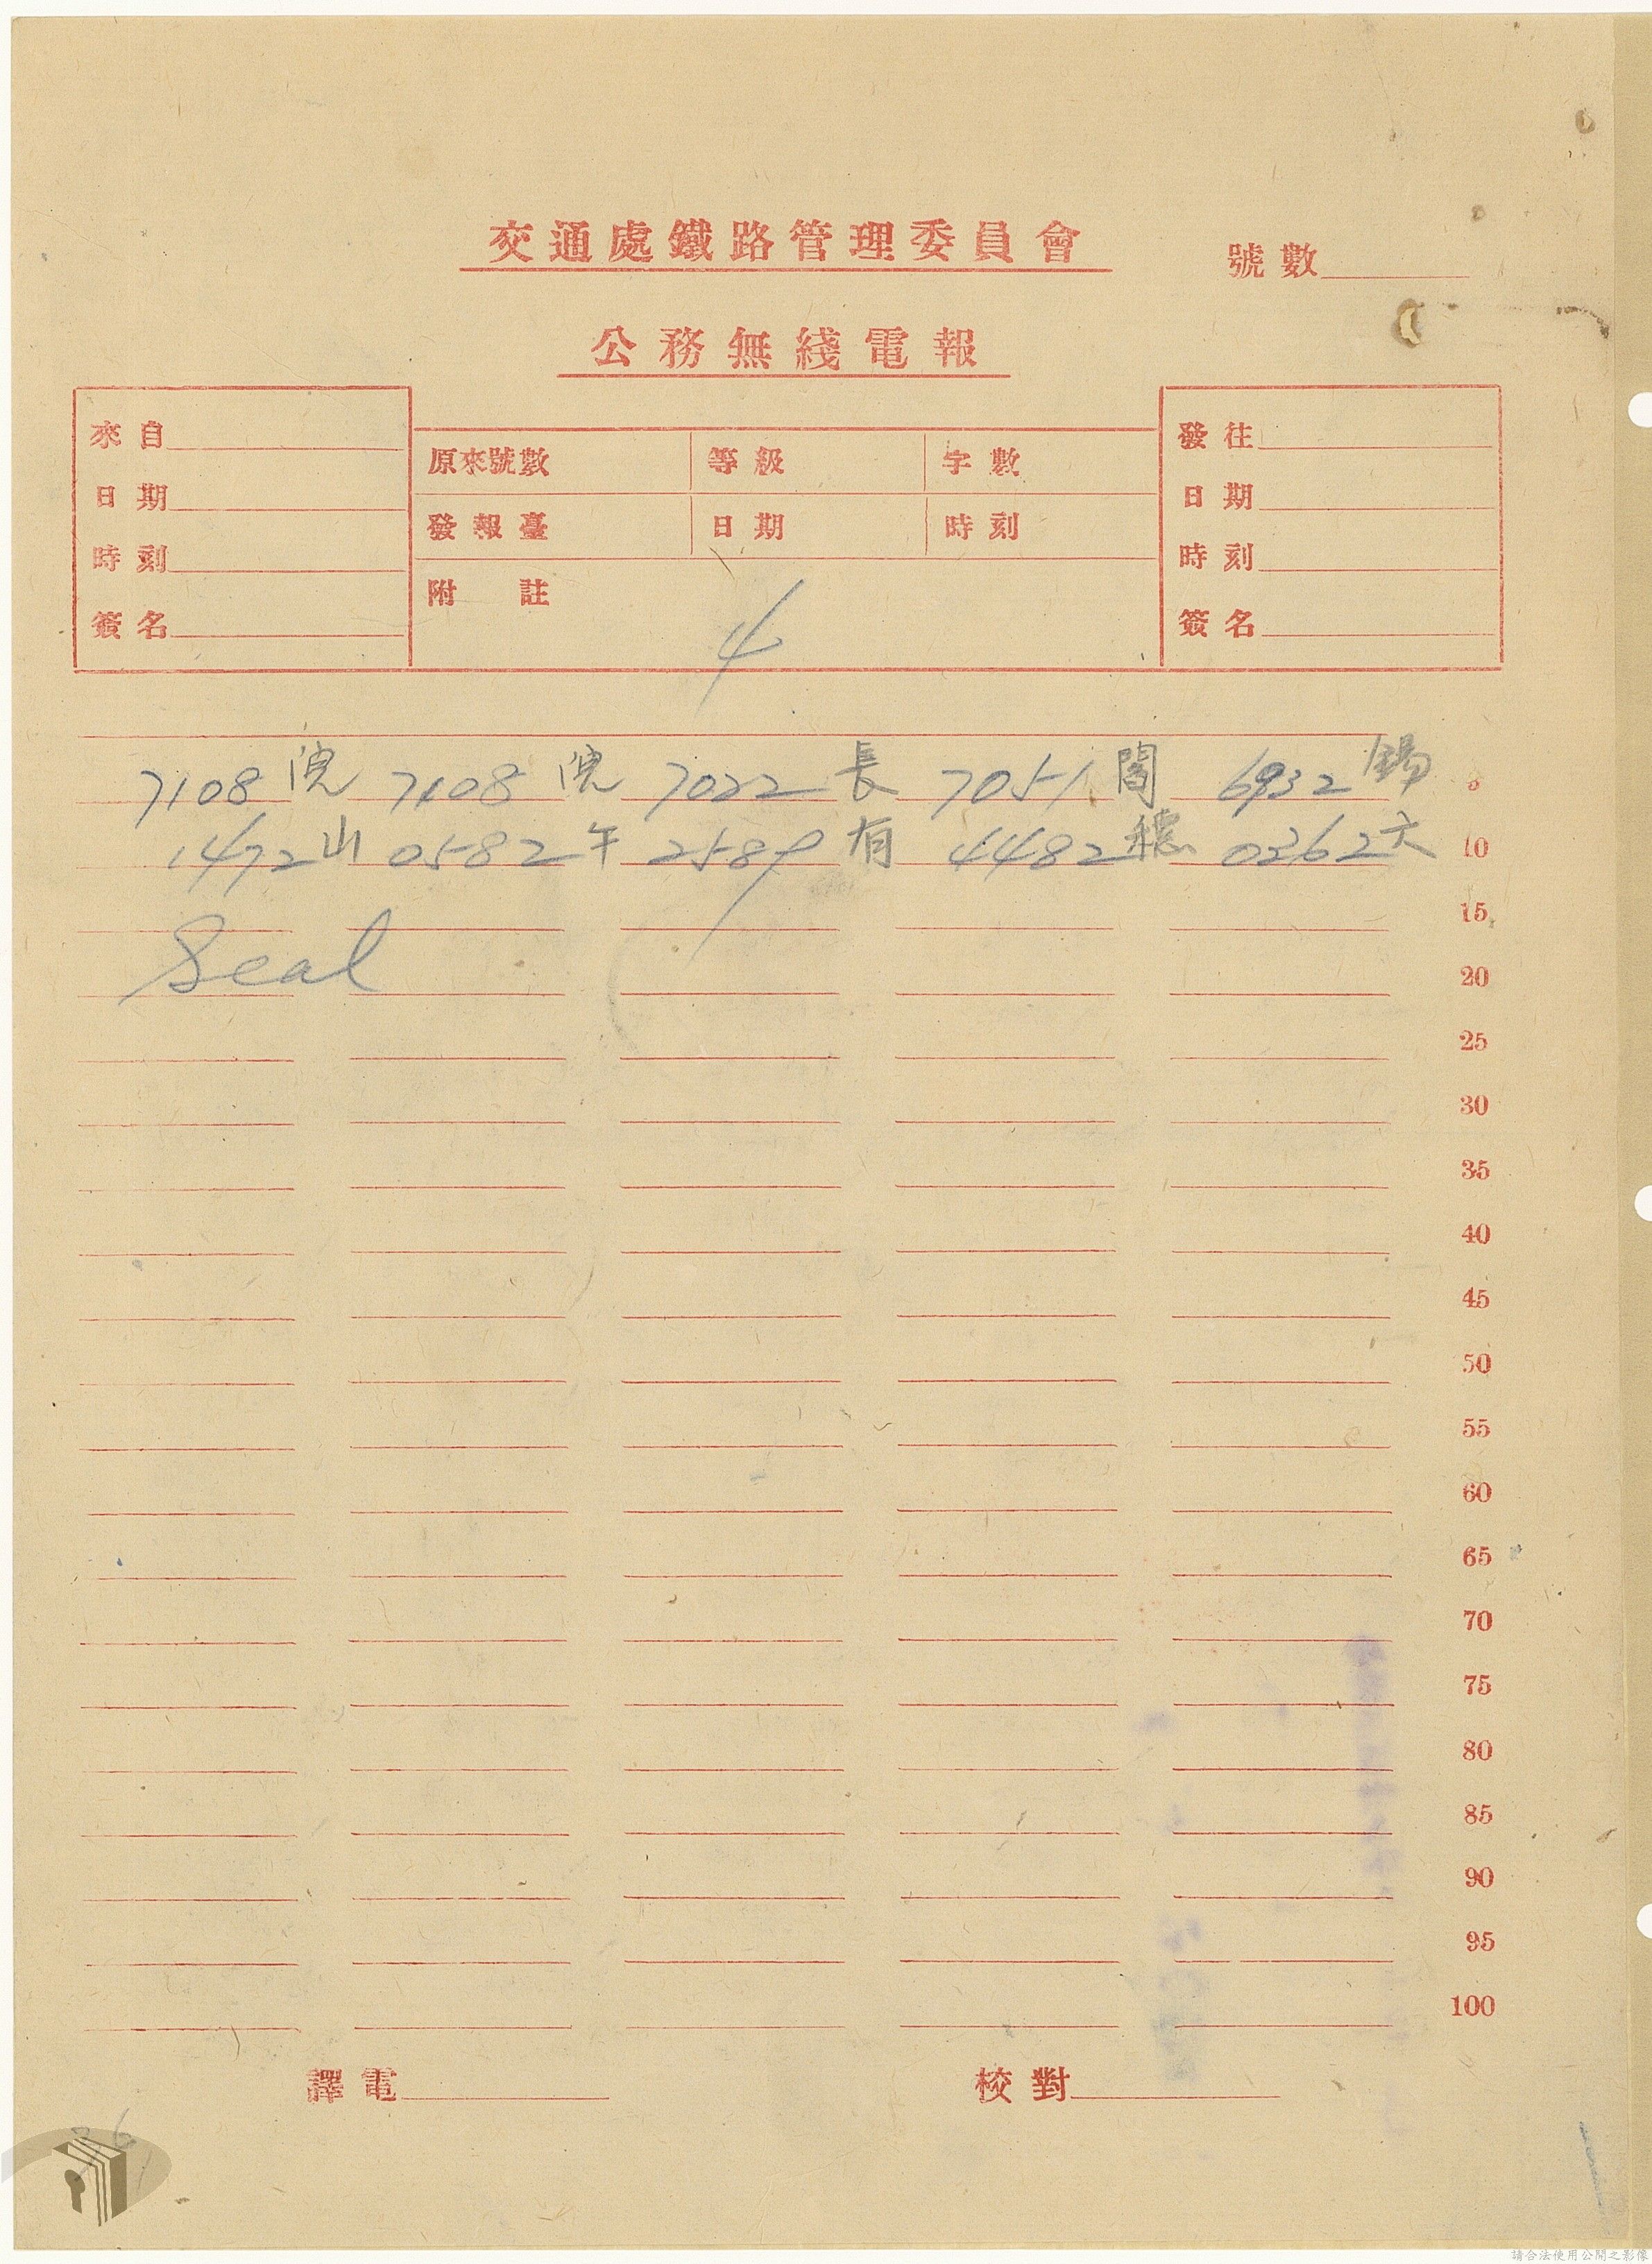 交通處鐵路管理委員會
號數
公務無綫電報
來自
日期
時刻
簽名
原來號數 等級 字數
發報臺 日期 時刻
附註
4
發往
日期
時刻
簽名
7108 院 7108 院 7022 長 7051 閻 6932 錫
1472 山 0582 午 2589 有 4482 穗 0362 六 10
15
Seal 20
25
30
35
40
45
50
55
60
65
70
75
80
85
90
95
100
譯電 校對
請合法使用公開之影像